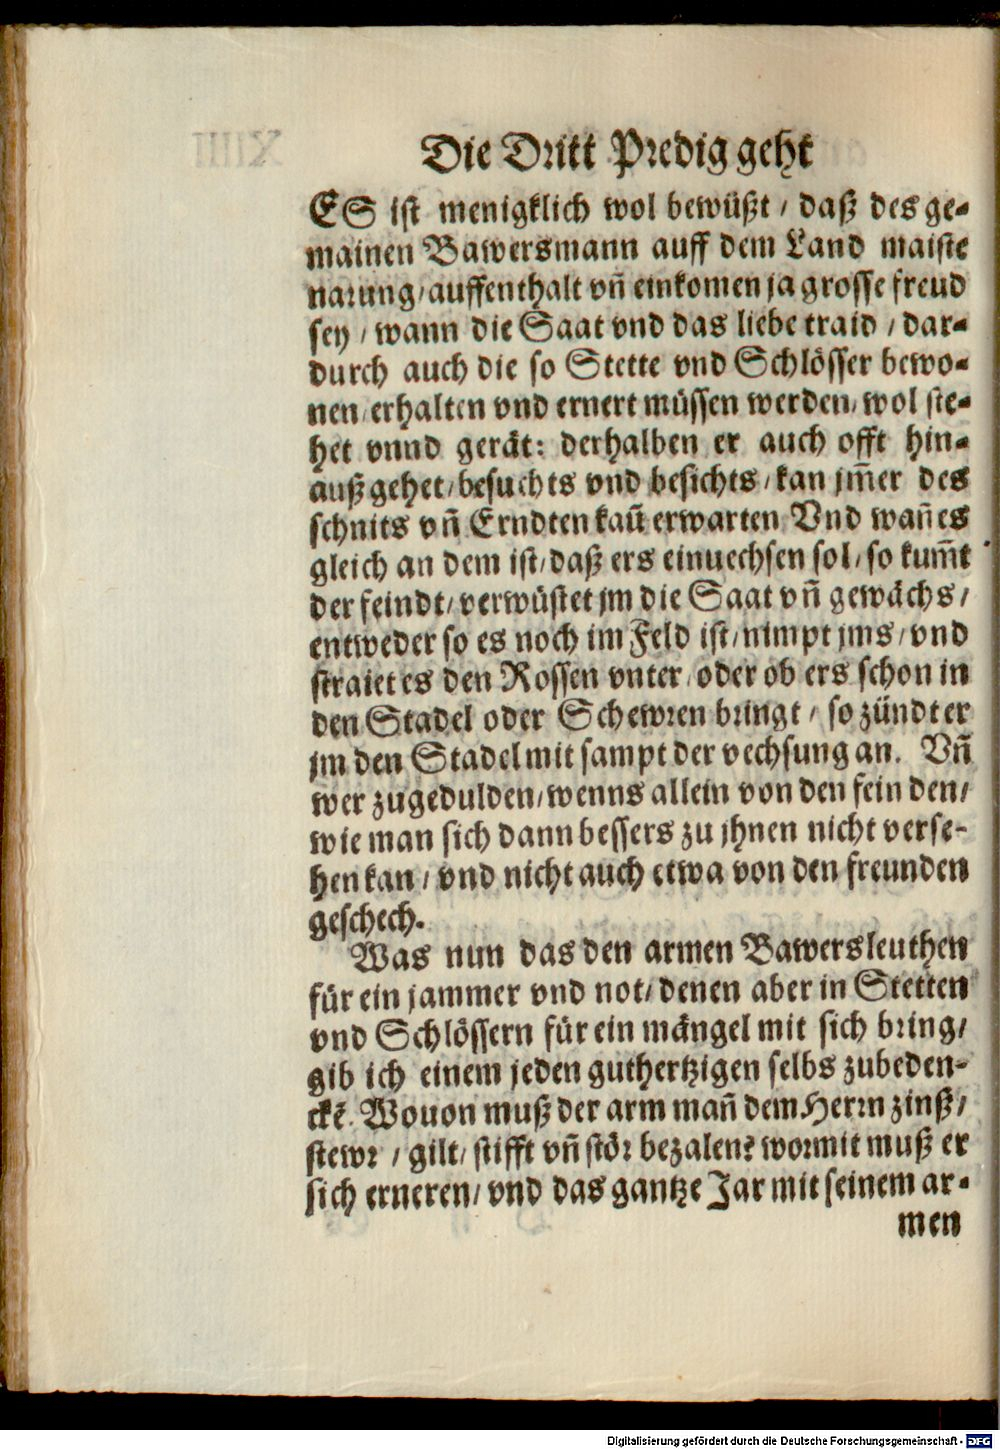 Die Dritt Predig geht
ES ist menigklich wol bewüßt / daß des ge-
mainen Bawersmann auff dem Land maiste
narung / auffenthalt vñ einkomen ja grosse freud
sey / wann die Saat vnd das liebe traid / dar-
durch auch die so Stette vnd Schlösser bewo-
nen / erhalten vnd ernert müssen werden / wol ste-
het vnnd gerät: derhalben er auch offt hin-
auß gehet / besuchts vnd besichts / kan jm̄er des
schnits vñ Erndten kaū erwarten Vnd wañ es
gleich an dem ist / daß ers einuechsen sol / so kum̄t
der feindt / verwüstet jm die Saat vñ gewächs /
entweder so es noch im Feld ist / nimpt jms / vnd
straiet es den Rossen vnter / oder ob ers schon in
den Stadel oder Schewren bringt / so zündt er
jm den Stadel mit sampt der vechsung an. Vñ
wer zugedulden / wenns allein von den feinden /
wie man sich dann bessers zu jhnen nicht verse-
hen kan / vnd nicht auch etwa von den freunden
geschech.
Was nun das den armen Bawersleuthen
für ein jammer vnd not / denen aber in Stetten
vnd Schlössern für ein mängel mit sich bring /
gib ich einem jeden guthertzigen selbs zubeden-
ckē. Wouon muß der arm mañ dem Herrn zinß /
stewr / gilt / stifft vñ stör bezalen? wormit muß er
sich erneren / vnd das gantze Jar mit seinem ar-
men
Digitalisierung gefördert durch die Deutsche Forschungsgemeinschaft - DFG